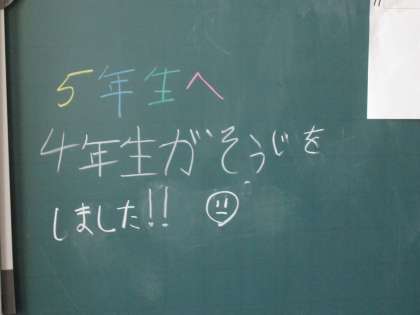 5年生へ
4年生がそうじを
しました!!